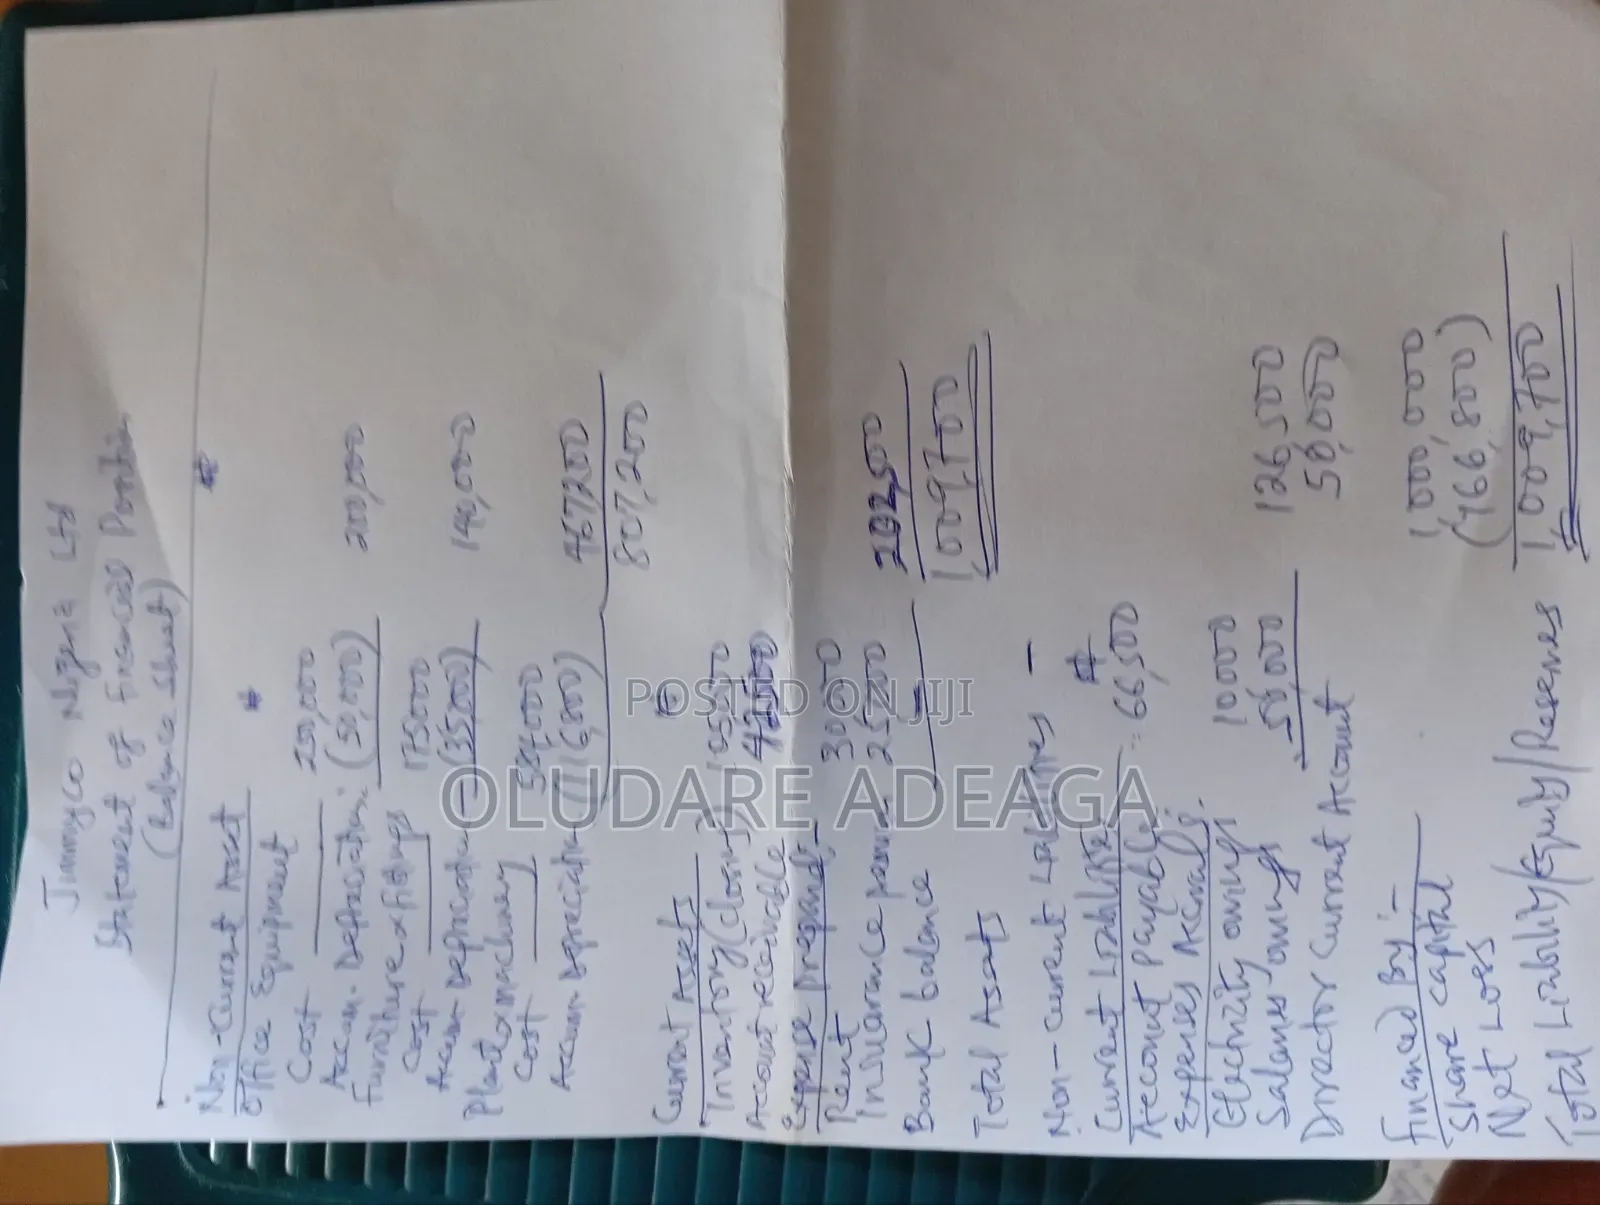 Jimmyco Nigeria Ltd
Statement of Financial Position
(Balance Sheet)
# #
Non-Current Asset
Office Equipment
Cost 250,000
Accum. Depreciation (50,000) 200,000
Furniture & fittings
Cost 175000
Accum Depreciation (35000) 140,000
Plant & machinery
Cost 584000
Accum Depreciation (116,800) 467200
807,200
Current Assets
Inventory (closing)
Account receivable
Expense Prepaid:-
Rent 30000
Insurance 25000 202,500
Bank balance -
Total Assets 1,009,700
Non-Current Liabilities -
Current Liabilities #
Account Payable 66,500
Expenses Accrual:
Electricity owings 10000
Salaries owings 50,000 126,500
Director Current Account 50,000
Financed By:-
Share Capital 1,000,000
Net Loss (166,800)
Total Liability/Equity/Reserves 1,009,700
POSTED ON JIJI
OLUDARE ADEAGA